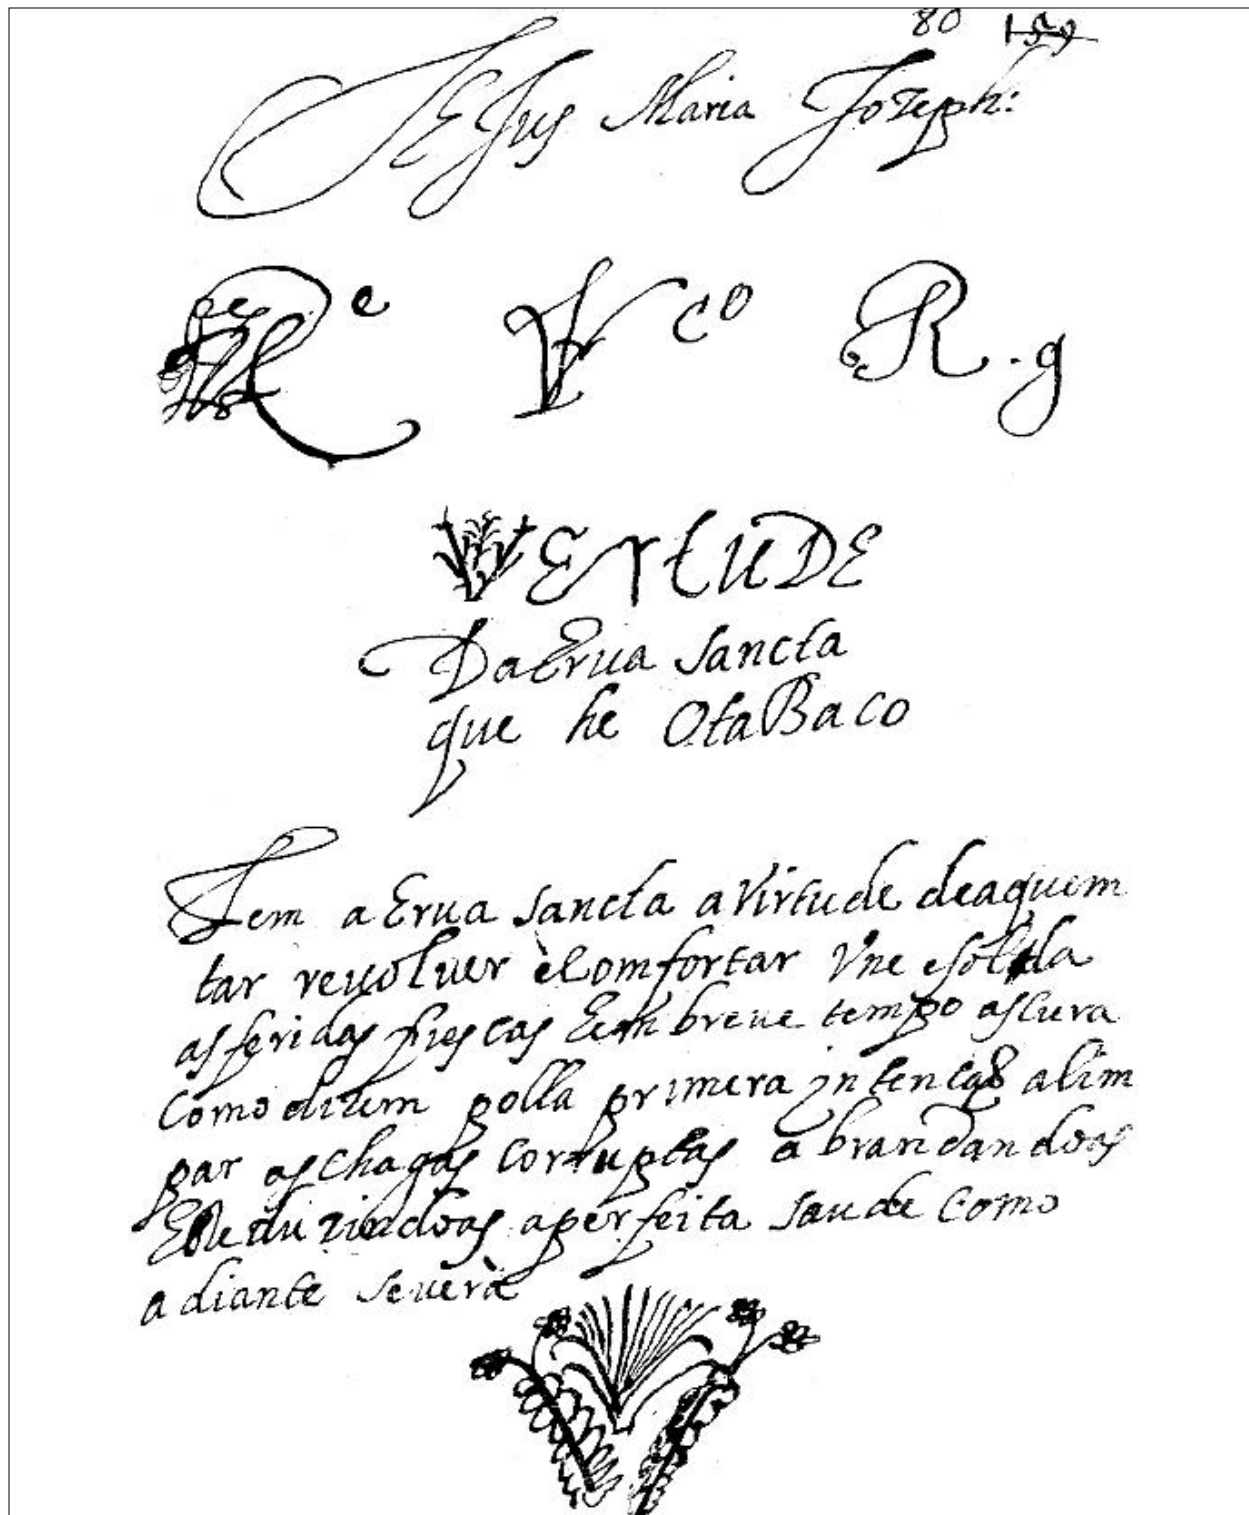 80 159
JEsus Maria Joseph:
R e V co R . g
VErtUDE
Da Erua sancta
que he OtaBaco
Tem a Erua sancta a virtude deaquem
tar reuoluer è Comfortar Vne esolda
as feridas frescas Eem breue tempo as cura
Como dizem polla primera jntencaõ alim
par as chagas corruptas abrandandoas
E Reduzindoas aperfeita saude Como
a diante se uerà